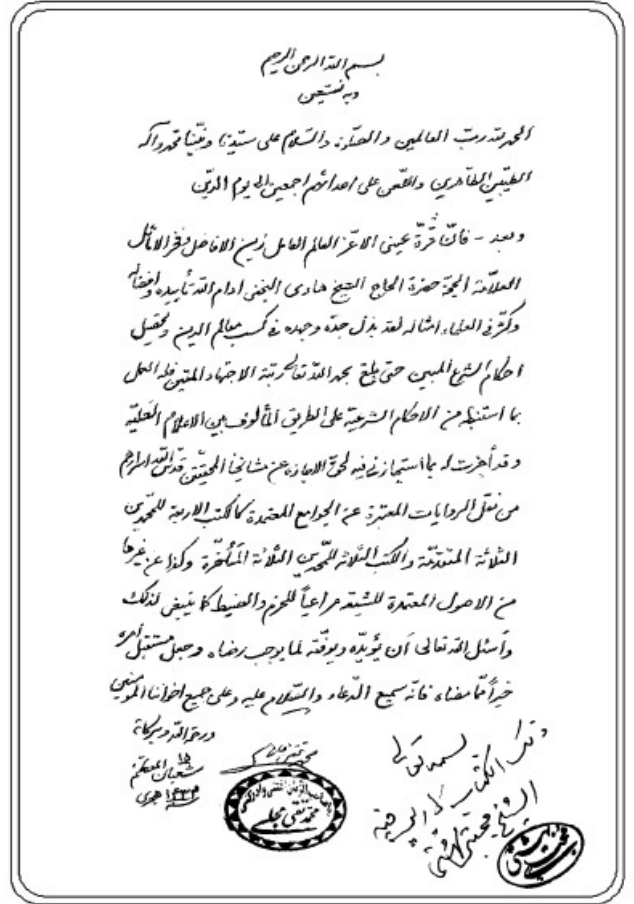 بسم الله الرحمن الرحیم
وبه نستعین
الحمد لله رب العالمین و الصلوة والسّلام على سیّدنا ونبیّنا محمّد وآله
الطیّبین الطاهرین واللعن على اعدائهم اجمعین الى یوم الدّین
وبعد - فانّ قرّة عینی الاعزّ العالم العامل زین الافاضل وفخر الاماثل
العلّامة الحجة حضرة الحاج الشیخ هادی النجفی ادام الله تأییده وافضاله
وکثّر فی العلماء امثاله لقد بذل جدّه وجهده فی کسب معالم الدین وتحصیل
احکام الشرع المبین حتى بلغ بحمد الله تعالى رتبة الاجتهاد المتین فله العمل
بما استنبطه من الاحکام الشرعیة على الطریق المألوف بین الاعلام
وقد أجزت له بما استجازنی فیه لحقّ الاجازة عن مشایخی المحقّقین قدّس الله اسرارهم
من نقل الروایات المعتبرة عن الجوامع المعتمدة کالکتب الاربعة للمحمّدین
الثلاثة المتقدّمة والکتب الثلاثة للمحمّدین الثلاثة المتأخّرة وکذا عن غیرها
من الاصول المعتمدة للشیعة مراعیاً للحزم والضبط کما ینبغی لذلک
وأسئل الله تعالى أن یؤیّده ویوفّقه لما یوجب رضاه وجعل مستقبل أمره
خیراً ممّا مضاه فانّه سمیع الدّعاء والسّلام علیه وعلى جمیع اخواننا المؤمنین
ورحمة الله وبرکاته
شعبان المعظّم
هجری
محمد تقی مجلسی
بسمه تعالى
الشیخ